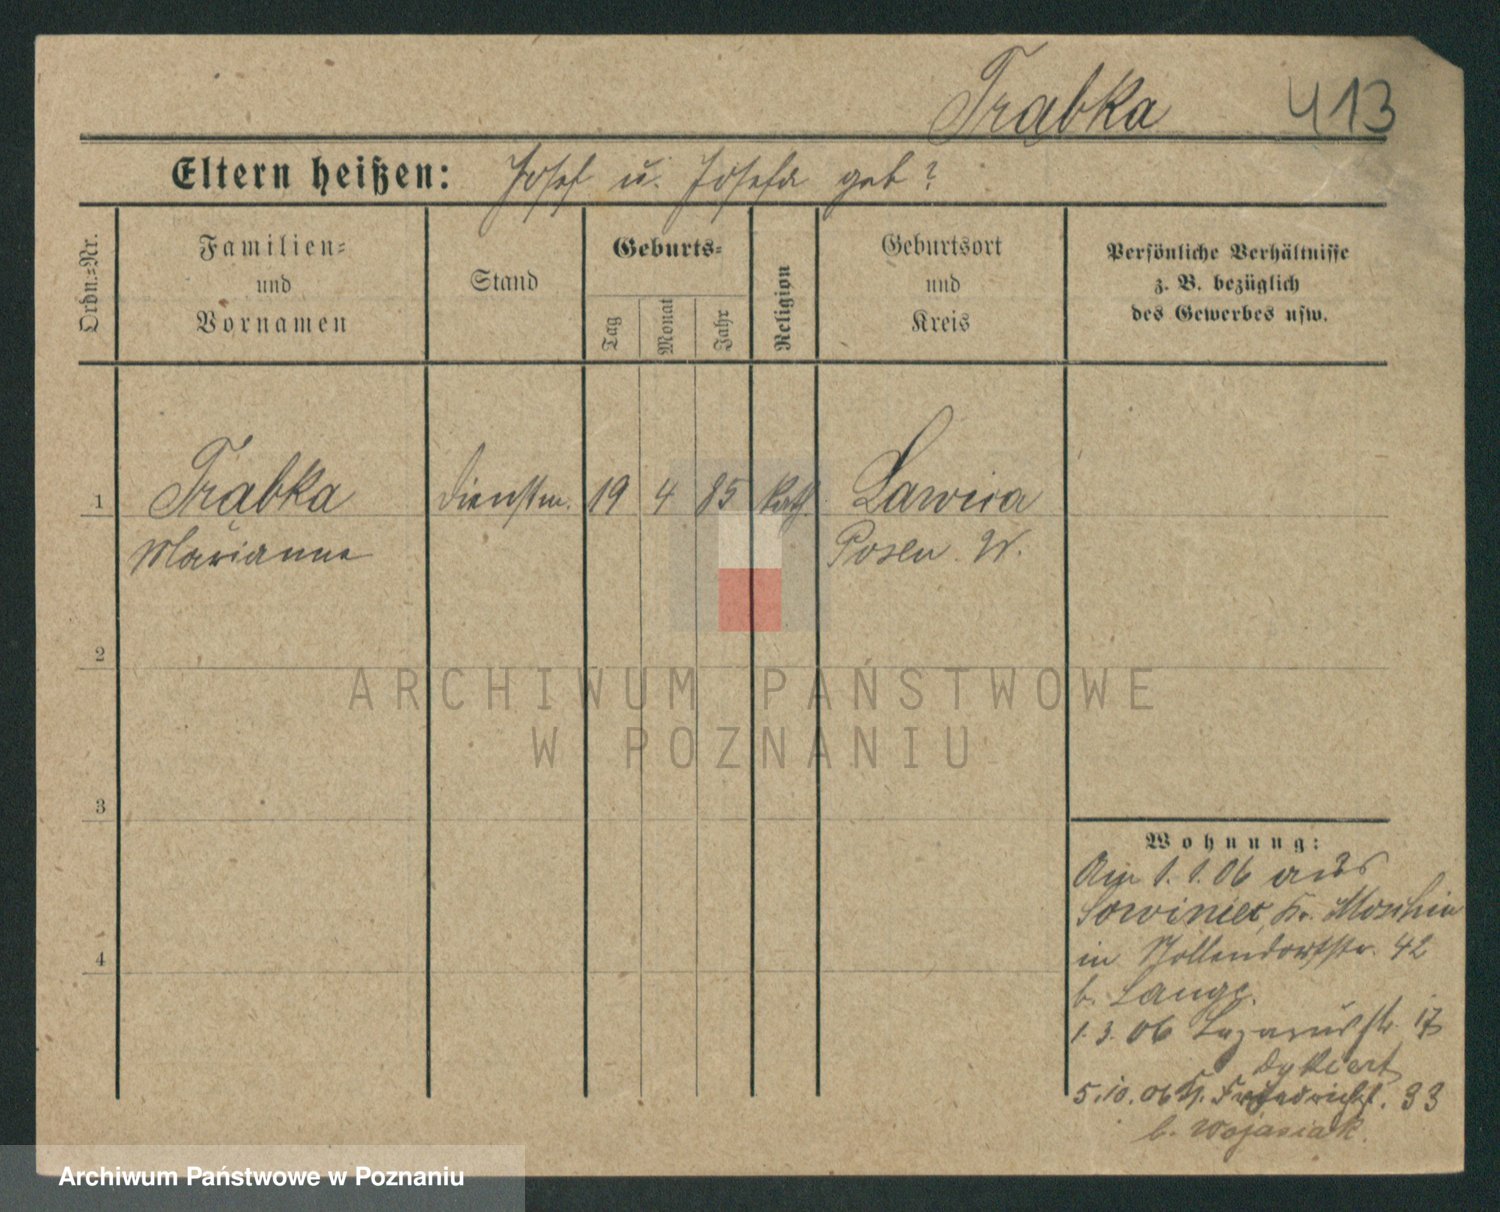 Trąbka 413
Eltern heißen: Josef u. Josefa geb?
Ordn.=Nr.
Familien=
und
Vornamen
Stand
Geburts=
Tag
Monat
Jahr
Religion
Geburtsort
und
Kreis
Persönliche Verhältnisse
z. B. bezüglich
des Gewerbes usw.
1 Trąbka Dienstm. 19 4 85 kath. Lawica
Marianne Posen W.
2
3
4
Wohnung:
Am 1. 1. 06 aus
Sowiniec, Kr. Moschin
in Nollendorfstr. 42
b. Lange.
1. 3. 06 Lazarusstr. 17
Dykiert
5. 10. 06 Friedrichst. 33
b. Wojasiak.
ARCHIWUM PAŃSTWOWE
W POZNANIU
Archiwum Państwowe w Poznaniu